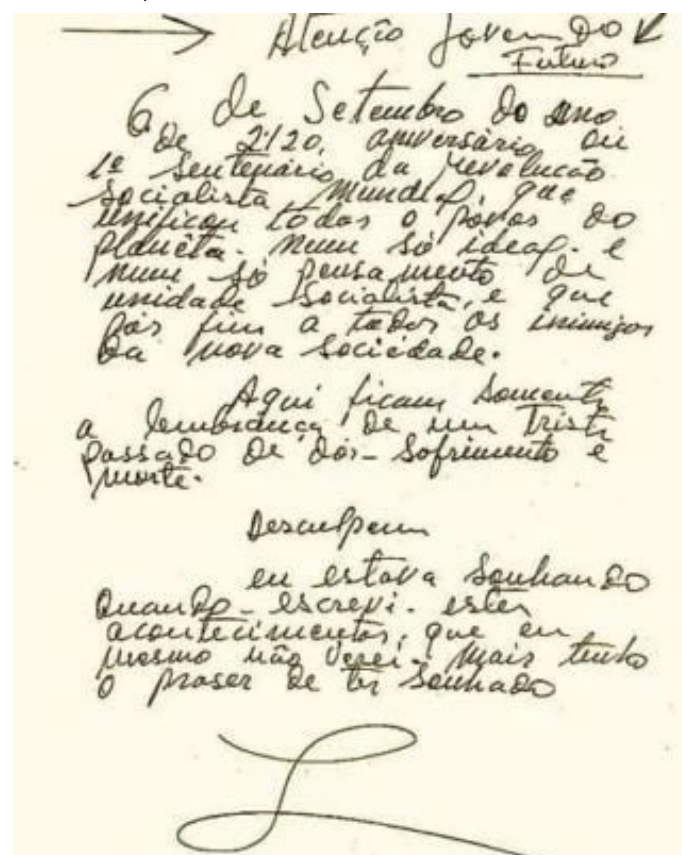 Atenção Jovem do
Futuro
6 de Setembro do ano
de 2120, aniversário ou
1º Sentenário da revolucão
Socialista Mundial, que
unificou todos o povos do
planêta. Num só ideal. e
num só pensamento de
unidade Socialista, e que
pôs fim a todos os inimigos
da nova sociedade.
Aqui ficam somente
a lembrança de um Triste
passado de dôr- Sofrimento e
morte.
Desculpem
eu estava Sonhando
Quando- escrevi. estes
acontecimentos, que eu
mesmo não verei. Mais tenho
o praser de ter Sonhado